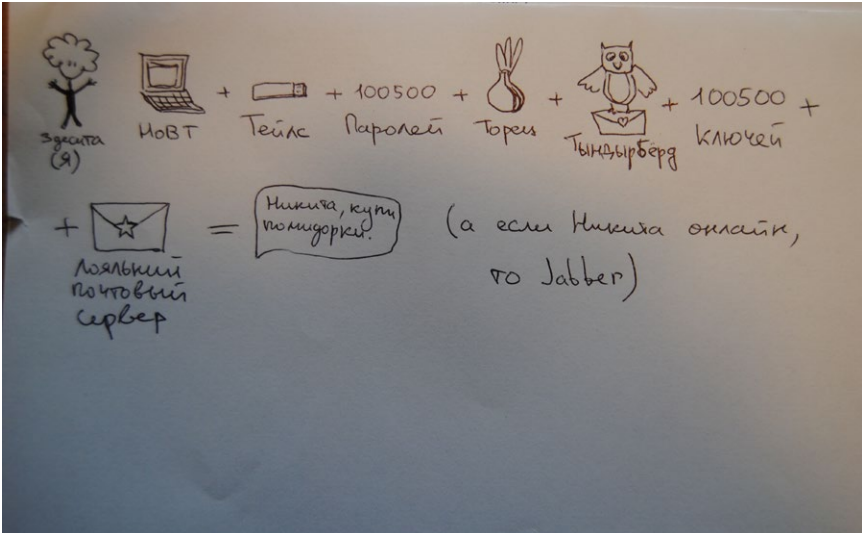 здесита
(я)
НоВТ + Тейлс + 100500 Паролей + Торец + Тындырбёрд + 100500 Ключей +
+ Лояльный
почтовый
сервер
=
Никита, купи
помидорки.
(а если Никита онлайн,
то Jabber)